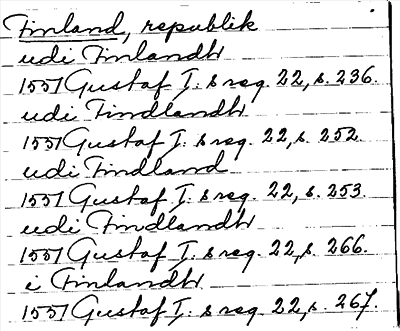 Finland, republik
udi Finlandh
1557 Gustaf I:s reg. 22, s. 236.
udi Findlandh
1557 Gustaf I:s reg. 22, s. 252.
udi Findland
1557 Gustaf I:s reg. 22, s. 253.
udi Findlandh
1557 Gustaf I:s reg. 22, s. 266.
i Finlandh
1557 Gustaf I:s reg. 22, s. 267.